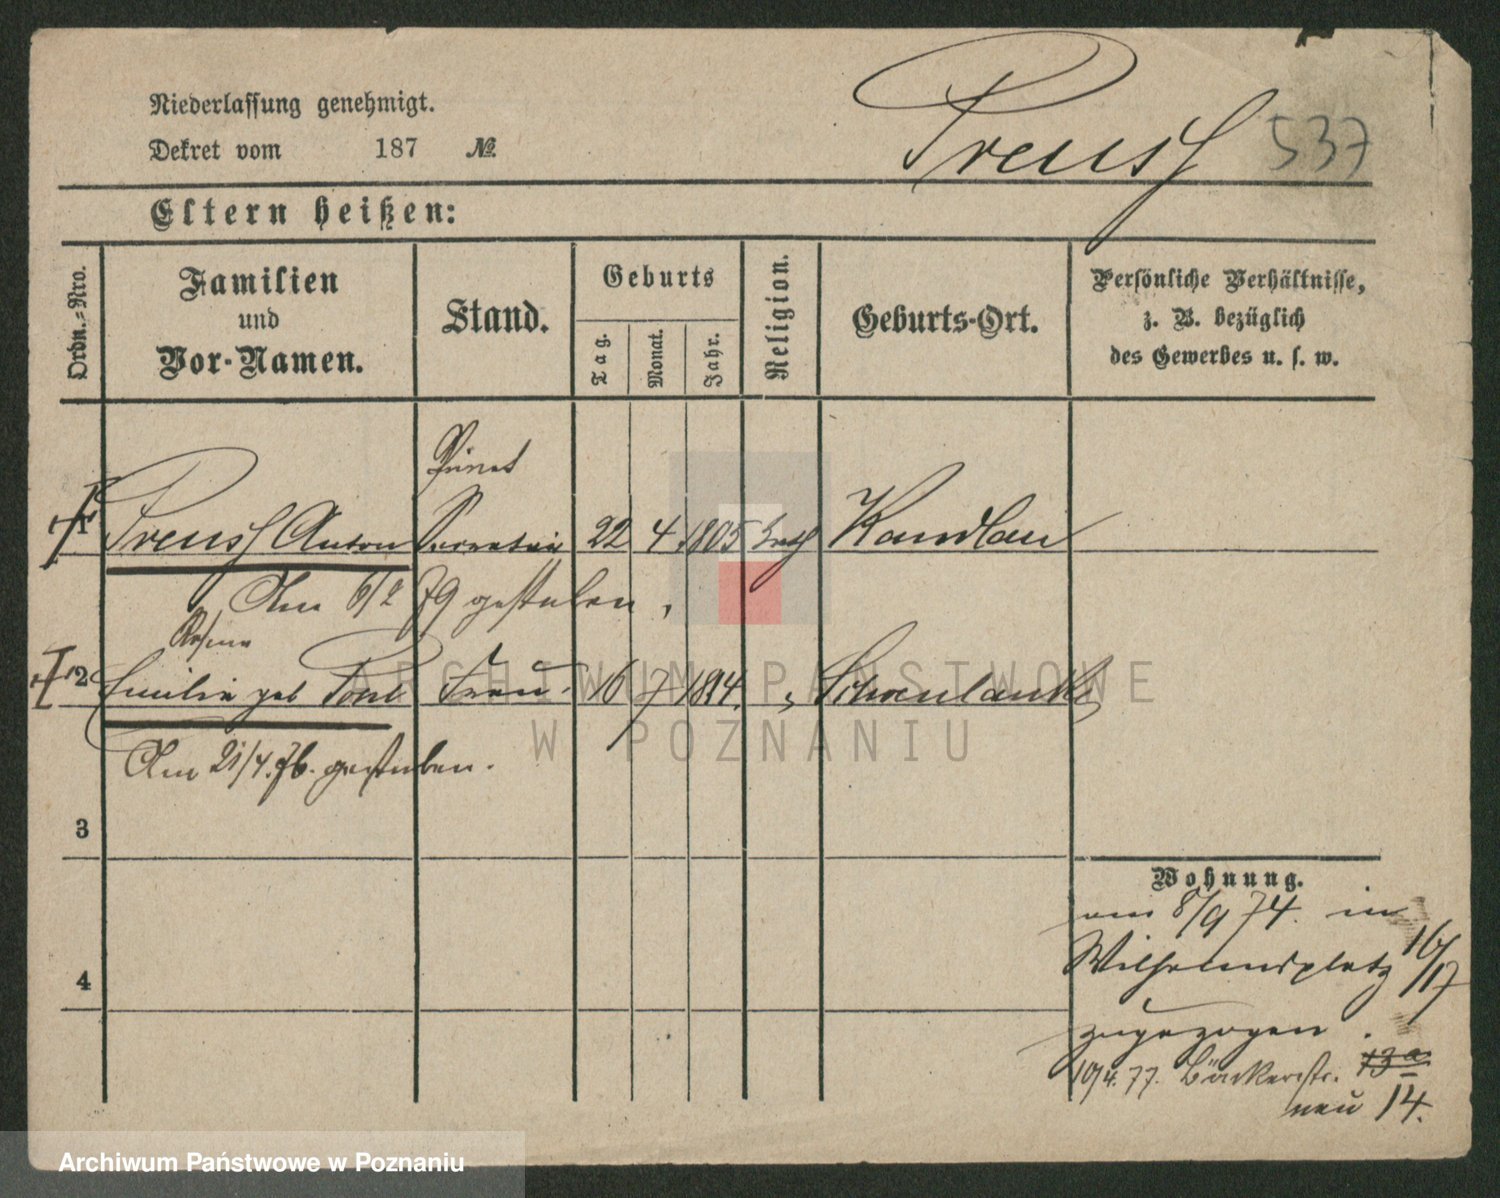 Niederlassung genehmigt.
Dekret vom 187 №
Preusß 537
Eltern heißen:
Ordn.=Nro.
Familien
und
Vor-Namen.
Stand.
Geburts
Tag.
Monat.
Jahr.
Religion.
Geburts-Ort.
Persönliche Verhältnisse,
z. B. bezüglich
des Gewerbes u. s. w.
Privat
1 Preusß Anton Secretair 22 4 1805 kath Kandlau
Am 6/2 79 gestorben,
2 Emilie geb Frau 16 7 1814. " Schoenlanke
Am 21/4.76. gestorben.
3
4
Wohnung.
am 8/9 74. in
Wilhelmsplatz 16/17
zugezogen.
10/4.77. Bäckerstr. 13a
neu 14.
ARCHIWUM PAŃSTWOWE
W POZNANIU
Archiwum Państwowe w Poznaniu